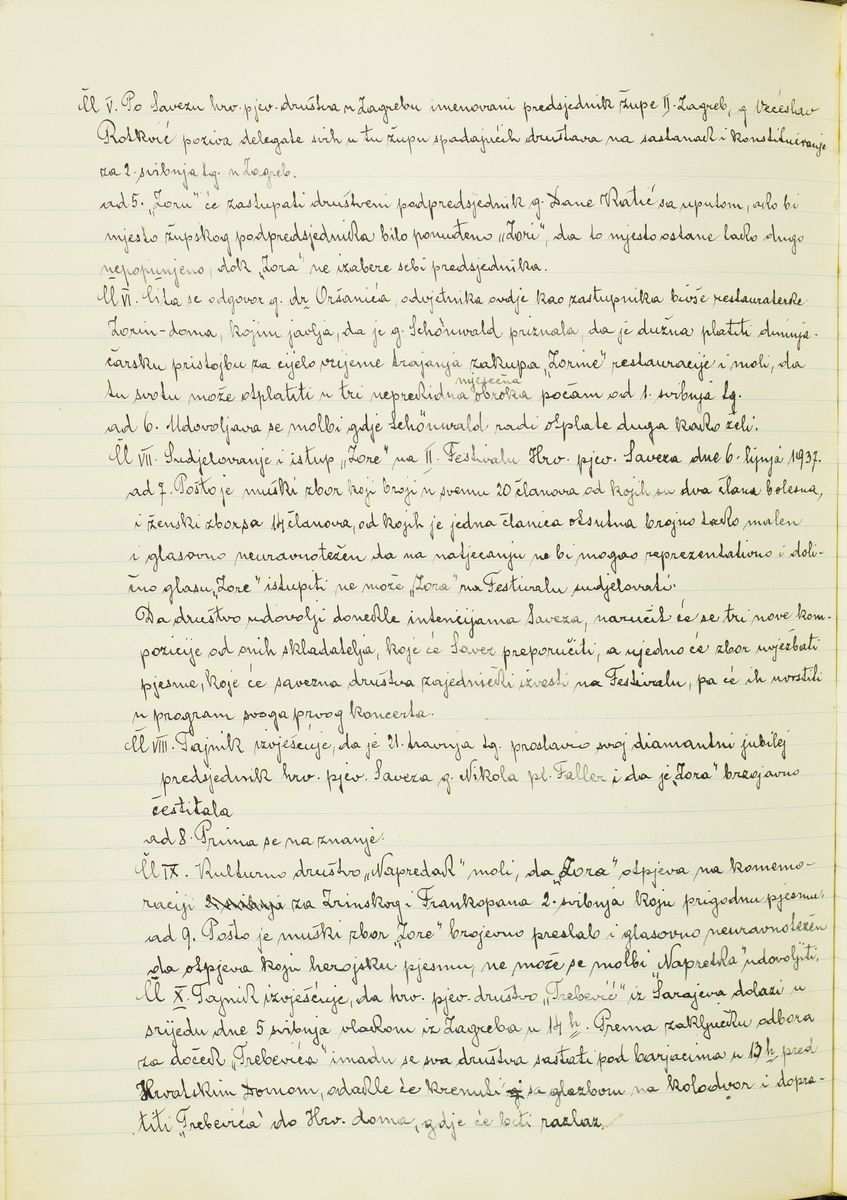 Čl V. Po Savezu hrv. pjev. društva u Zagrebu imenovani predsjednik župe II. Zagreb, g Većeslav
Rotkvić poziva delegate svih u tu župu spadajućih društava na sastanak i konstituiranje
za 2. svibnja tg. u Zagreb.
ad 5. „Zoru" će zastupati društveni podpredsjednik g. Dane Katić sa uputom, ako bi
mjesto župskog podpredsjednika bilo ponuđeno „Zori", da to mjesto ostane tako dugo
nepopunjeno, dok „Zora" ne izabere sebi predsjednika.
Čl VI. Čita se odgovor g. dr Oršanića, odvjetnika ovdje kao zastupnika bivše restauraterke
Zorin-doma, kojim javlja, da je g. Schönwald priznala, da je dužna platiti dimnja-
čarsku pristojbu za cijelo vrijeme trajanja zakupa „Zorine" restauracije i moli, da
tu svotu može otplatiti u tri neprekidna mjesečna obroka počam od 1. svibnja tg.
ad 6. Udovoljava se molbi gdje Schönwald radi otplate duga kako želi.
Čl VII. Sudjelovanje i istup „Zore" na II. Festivalu Hrv. pjev. Saveza dne 6. lipnja 1937.
ad 7. Pošto je muški zbor koji broji u svemu 20 članova od kojih su dva člana bolesna,
i ženski zbor sa 14 članova, od kojih je jedna članica otsutna brojno tako malen
i glasovno neuravnotežen da na natjecanju ne bi mogao reprezentativno i doli-
čno glasu „Zore" istupiti ne može „Zora" na Festivalu sudjelovati.
Da društvo udovolji donekle intencijama Saveza, naručit će se tri nove kom-
pozicije od onih skladatelja, koje će Savez preporučiti, a ujedno će zbor uvježbati
pjesme, koje će savezna društva zajednički izvesti na Festivalu, pa će ih uvrstiti
u program svoga prvog koncerta.
Čl VIII. Tajnik izvješćuje, da je 21. travnja tg. proslavio svoj diamantni jubilej
predsjednik hrv. pjev. Saveza g. Nikola pl. Faller i da je „Zora" brzojavno
čestitala
ad 8. Prima se na znanje.
Čl IX. Kulturno društvo „Napredak" moli, da „Zora" otpjeva na komemo-
raciji 2. svibnja za Zrinskog i Frankopana 2. svibnja koju prigodnu pjesmu.
ad 9. Pošto je muški zbor „Zore" brojevno preslab i glasovno neuravnotežen
da otpjeva koju herojsku pjesmu, ne može se molbi „Napretka" udovoljiti.
Čl X. Tajnik izvješćuje, da hrv. pjev. društvo „Trebević" iz Sarajeva dolazi u
srijedu dne 5 svibnja vlakom iz Zagreba u 14 h. Prema zaključku odbora
za doček „Trebevića" imadu se sva društva sastati pod barjacima u 13 h pred
Hrvatskim Domom, odakle će krenuti sa glazbom na kolodvor i dopra-
titi „Trebevića" do Hrv. doma, gdje će biti razlaz.